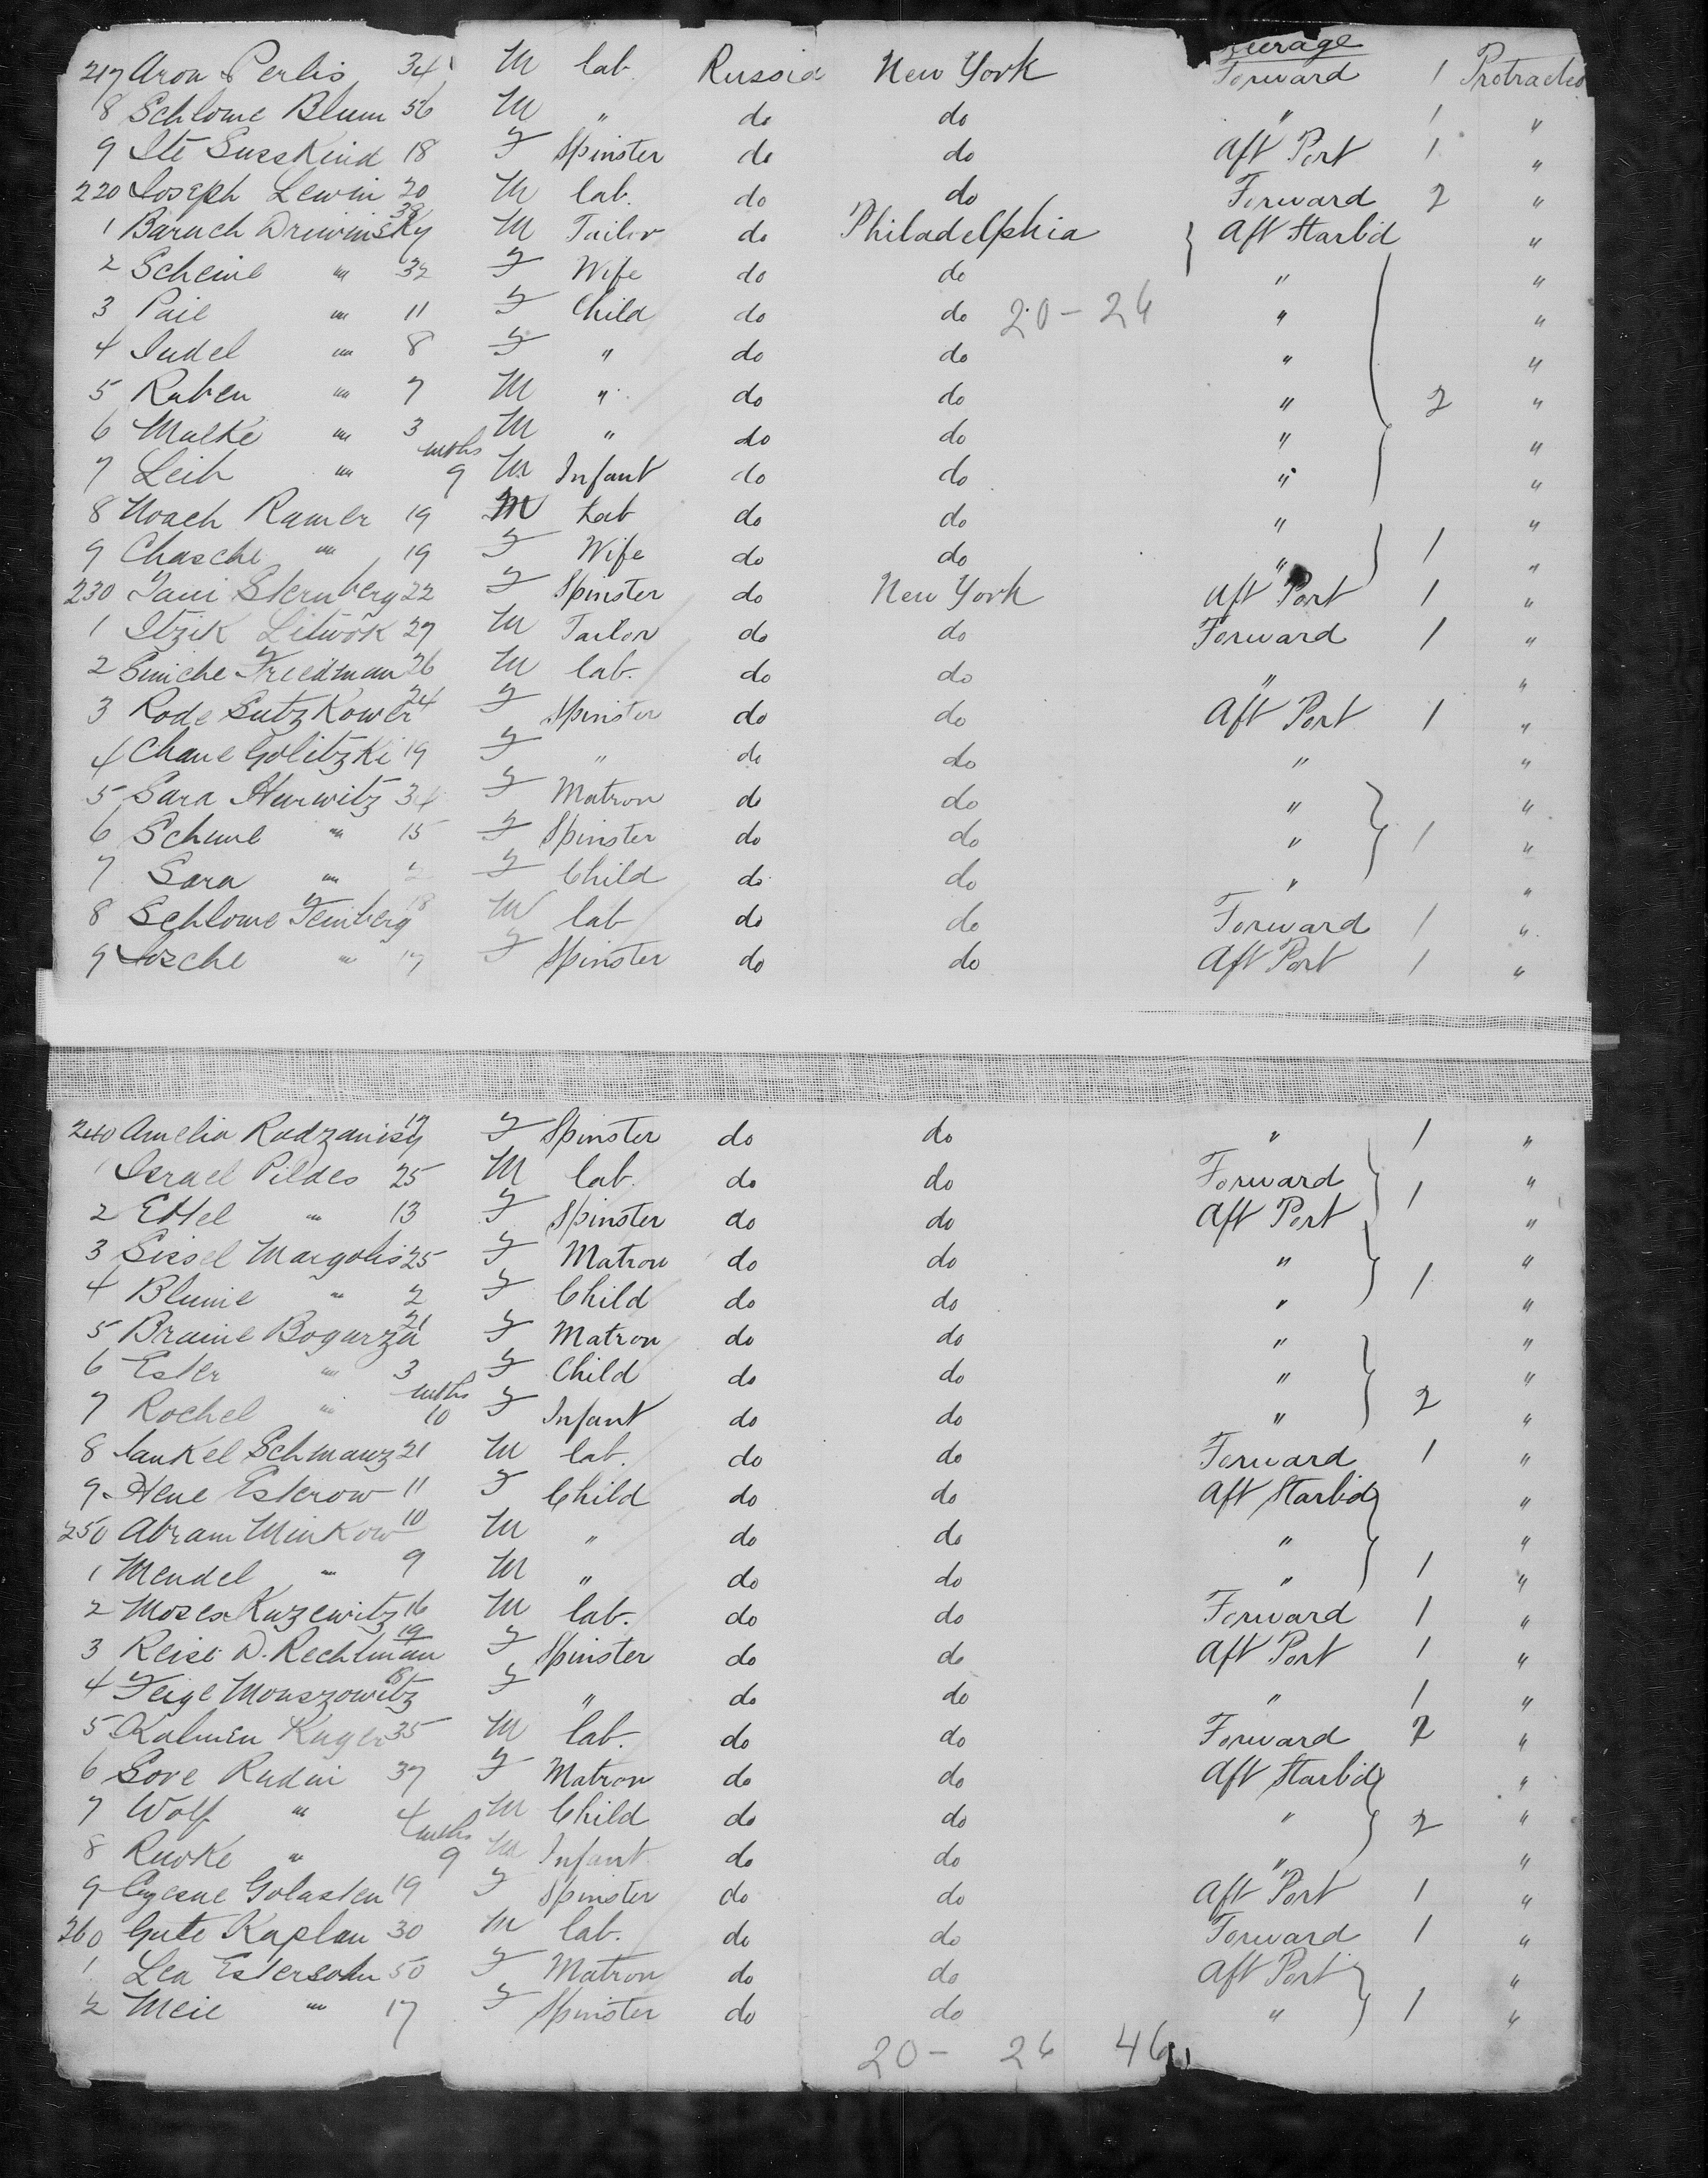 Steerage
217 Aron Perlis 34 M lab. Russia New York Forward 1 Protracted
8 Schlome Blum 56 M " do do " 1 "
9 Ite Susskind 18 F Spinster do do Aft Port 1 "
220 Joseph Lewin 20 M lab. do do Forward 2 "
1 Baruch Driwinsky 38 M Tailor do Philadelphia Aft Starb'd "
2 Scheine " 32 F Wife do do " "
3 Paie " 11 F Child do do 20-26 " "
4 Judel " 8 F " do do " "
5 Ruben " 7 M " do do " 2 "
6 Malke " 3 M " do do " "
7 Leib " mths 9 M Infant do do " "
8 Noach Ramer 19 M Lab do do " "
9 Chasche " 19 F Wife do do " 1 "
230 Tani Sternberg 22 F Spinster do New York Aft Port 1 "
1 Itzik Litwok 27 M Tailor do do Forward 1 "
2 Simche Friedman 26 M lab. do do " "
3 Rode Sutzkower 24 F Spinster do do Aft Port 1 "
4 Chane Golitzki 19 F " do do " "
5 Sara Hurwitz 34 F Matron do do " "
6 Scheine " 15 F Spinster do do " 1 "
7 Sara " 2 F Child do do " "
8 Schlome Feinberg 18 M lab do do Forward 1 "
9 Josche " 17 F Spinster do do Aft Port 1 "
240 Amelia Rodzanisy 17 F Spinster do do " 1 "
1 Israel Pildes 25 M lab. do do Forward 1 "
2 Ettel " 13 F Spinster do do Aft Port "
3 Sissel Margolis 25 F Matron do do " "
4 Blume " 2 F Child do do " 1 "
5 Braine Bogurza 21 F Matron do do " "
6 Ester " 3 F Child do do " "
7 Rochel " mths 10 F Infant do do " 2 "
8 Jankel Schmanz 21 M lab. do do Forward 1 "
9 Hene Esterow 11 F Child do do Aft Starb'd "
250 Abram Minkow 10 M " do do " "
1 Mendel " 9 M " do do " 1 "
2 Moses Kuzewitz 16 M lab. do do Forward 1 "
3 Reise D. Rechtman 19 F Spinster do do Aft Port 1 "
4 Feige Mouszowitz 18 F " do do " 1 "
5 Kalmen Kuger 35 M lab. do do Forward 2 "
6 Sore Rudni 37 F Matron do do Aft Starb'd "
7 Wolf " 4 M Child do do " 2 "
8 Riwke " mths 9 M Infant do do " "
9 Golasten 19 F Spinster do do Aft Port 1 "
260 Gute Kaplan 30 M lab. do do Forward 1 "
1 Lea Estersohn 50 F Matron do do Aft Port "
2 Meie " 17 F Spinster do do " 1 "
20- 26 46